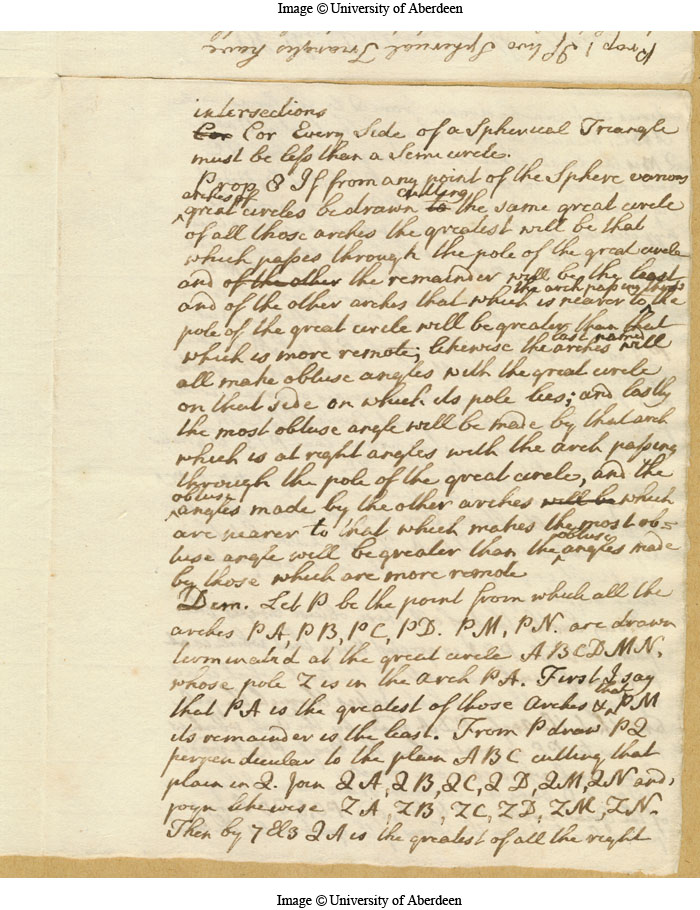 Image © University of Aberdeen
Prop 1 If two Spherical Triangles have
intersections
Cor Cor Every Side of a Spherical Triangle
must be less than a Semicircle.
Prop 8 If from any point of the Sphere various
arches of cutting
great circles be drawn to the same great circle
of all those arches the greatest will be that
which passes through the pole of the great circle
and of the other the remainder will be the least
the arch passing thro
and of the other arches that which is nearer to the
pole of the great circle will be greater than that
last named
which is more remote; likewise the arches will
all make obtuse angles with the great circle
on that side on which its pole lies; and lastly
the most obtuse angle will be made by that arch
which is at right angles with the arch passing
through the pole of the great circle, and the
obtuse
angles made by the other arches will be which
are nearer to that which makes the most ob=
obtuse
tuse angle will be greater than the angles made
by those which are more remote
Dem. Let P be the point from which all the
arches PA, PB, PC, PD. PM, PN. are drawn
terminated at the great circle ABCDMN,
whose pole Z is in the arch PA. First I say
that
that PA is the greatest of those Arches & PM
its remainder is the least. From P draw PQ
perpendicular to the plain ABC cutting that
plain in Q. Join QA, QB, QC, QD, QM, QN and,
joyn likewise ZA, ZB, ZC, ZD, ZM, ZN.
Then by 7 El 3 QA is the greatest of all the right
Image © University of Aberdeen